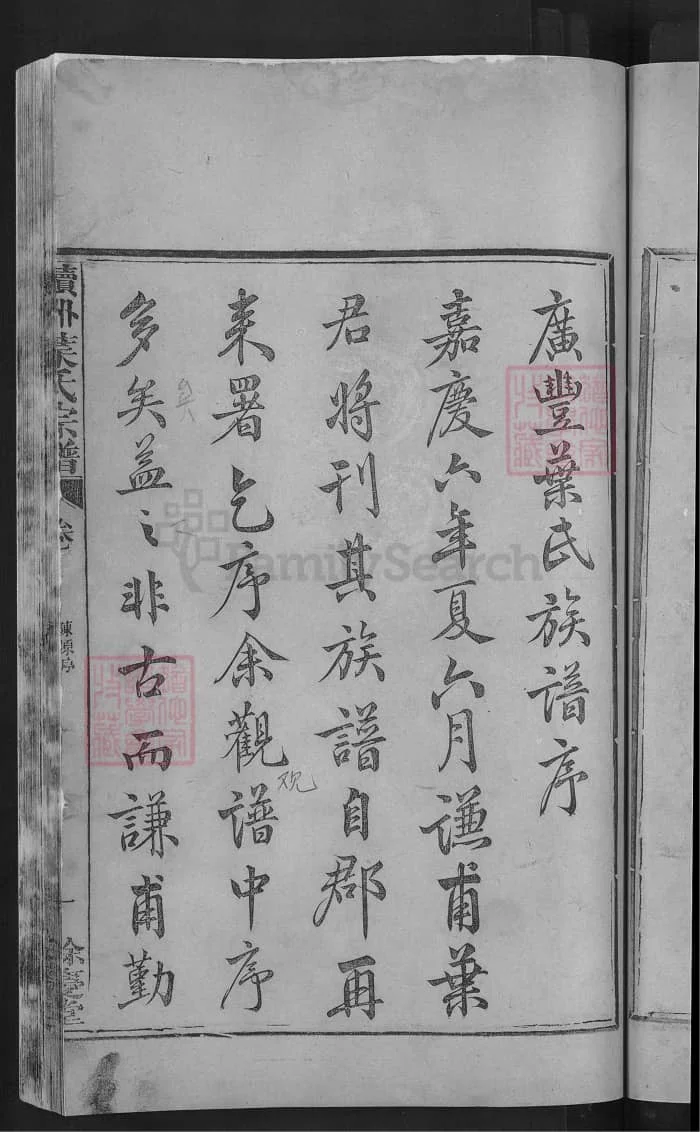 廣豐葉氏族譜序
嘉慶六年夏六月謙甫葉
君將刊其族譜自郡再
來署乞序余觀譜中序
观
多矣益之非古而謙甫勤
葉氏宗譜
餘慶堂
FamilySearch